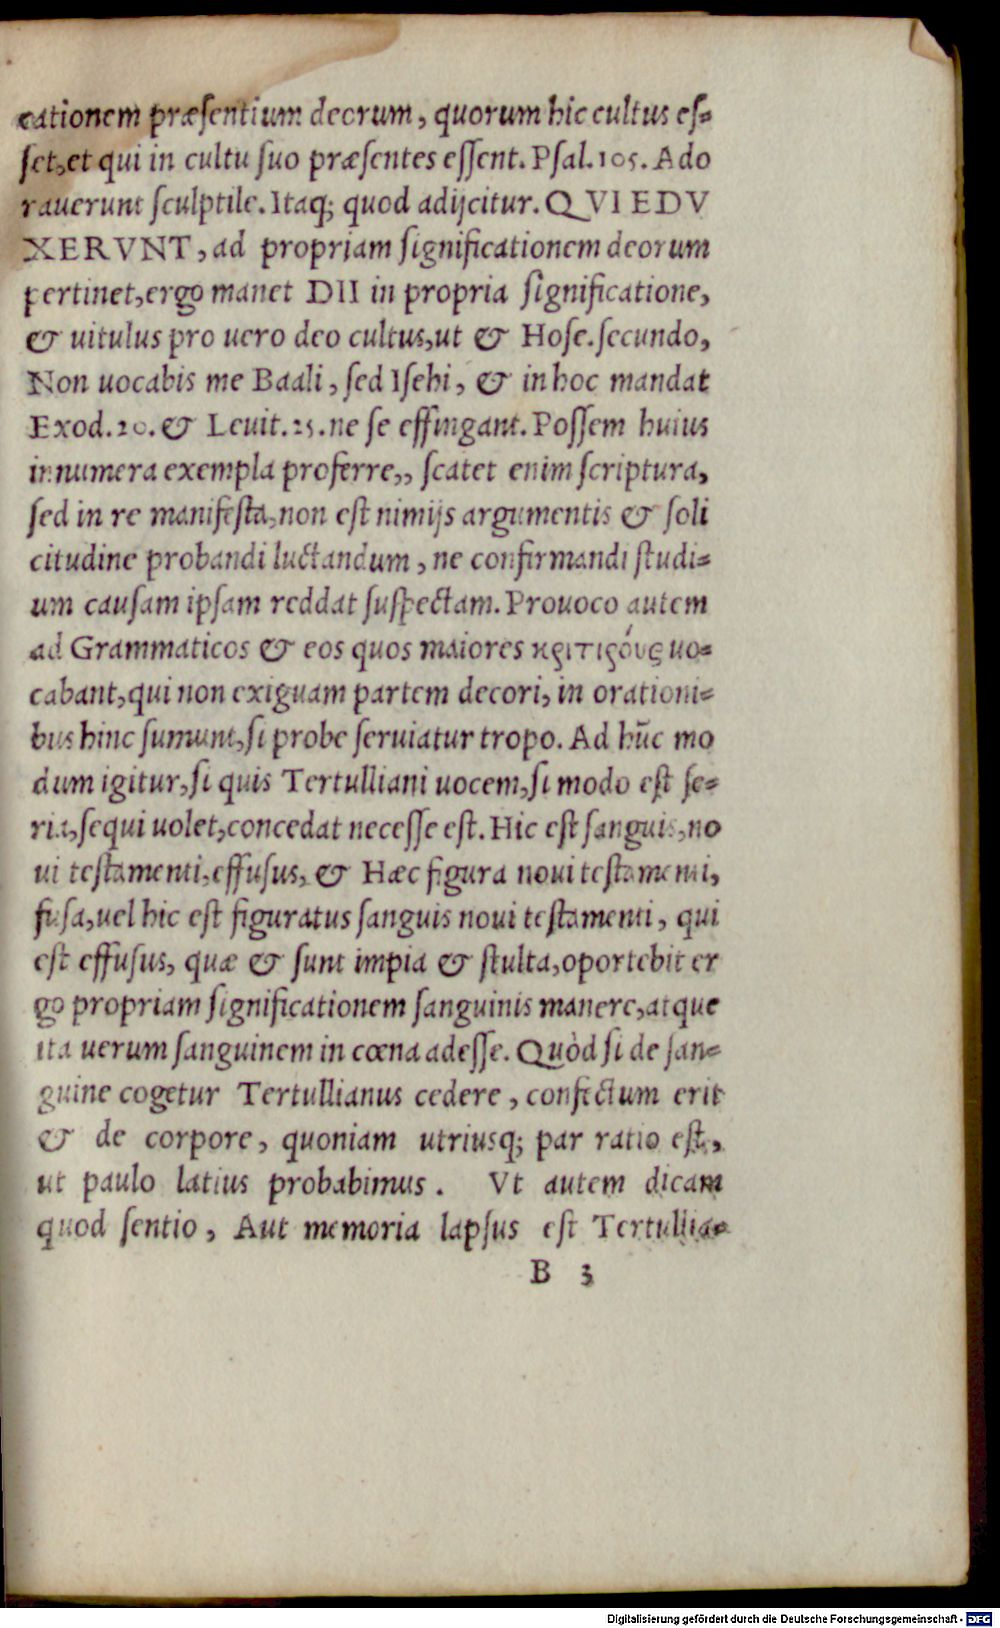 cationem præſentium deorum, quorum hic cultus eſ⸗
ſet, et qui in cultu ſuo præſentes eſſent. Pſal. 105. Ado
rauerunt ſculptile. Itaq; quod adijcitur. QVI EDV
XERVNT, ad propriam ſignificationem deorum
pertinet, ergo manet DII in propria ſignificatione,
& uitulus pro uero deo cultus, ut & Hoſe. ſecundo,
Non uocabis me Baali, ſed Iſehi, & in hoc mandat
Exod. 20. & Leuit. 25. ne ſe effingant. Poſſem huius
innumera exempla proferre,, ſcatet enim ſcriptura,
ſed in re manifeſta, non eſt nimijs argumentis & ſoli
citudine probandi luctandum, ne confirmandi ſtudi⸗
um cauſam ipſam reddat ſuſpectam. Prouoco autem
ad Grammaticos & eos quos maiores κριτικούς uo⸗
cabant, qui non exiguam partem decori, in orationi⸗
bus hinc ſumunt, ſi probe ſeruiatur tropo. Ad hūc mo
dum igitur, ſi quis Tertulliani uocem, ſi modo eſt ſe⸗
ria, ſequi uolet, concedat neceſſe eſt. Hic eſt ſanguis, no
ui teſtamenti, effuſus, & Hæc figura noui teſtamenti,
fuſa, uel hic eſt figuratus ſanguis noui teſtamenti, qui
eſt effuſus, quæ & ſunt impia & ſtulta, oportebit er
go propriam ſignificationem ſanguinis manere, atque
ita uerum ſanguinem in cœna adeſſe. Quòd ſi de ſan⸗
guine cogetur Tertullianus cedere, confectum erit
& de corpore, quoniam utriusq; par ratio eſt,
ut paulo latius probabimus. Vt autem dicam
quod ſentio, Aut memoria lapſus eſt Tertullia⸗
B 3
Digitalisierung gefördert durch die Deutsche Forschungsgemeinschaft - DFG